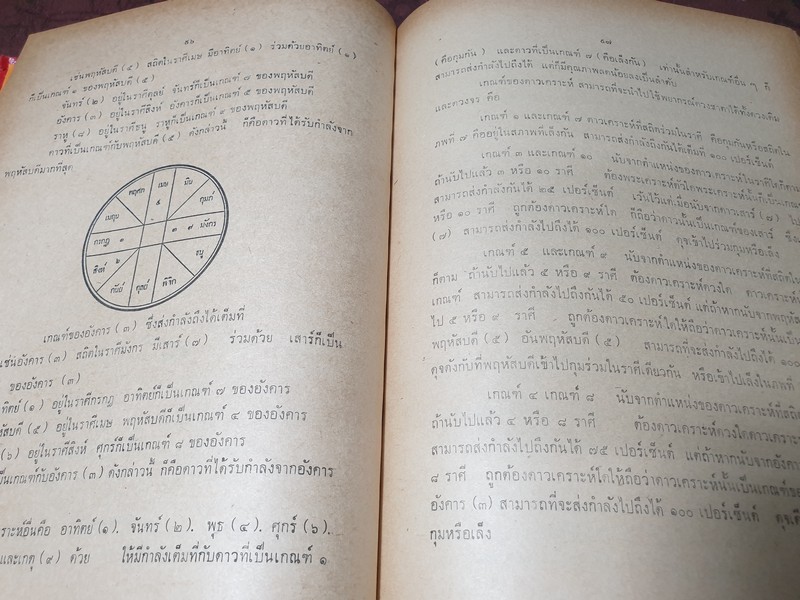 ๙๖
เช่นพฤหัสบดี (๕) สถิตในราศีเมษ มีอาทิตย์ (๑) ร่วมด้วยอาทิตย์ (๑)
ก็เป็นเกณฑ์ ๑ ของพฤหัสบดี (๕)
จันทร์ (๒) อยู่ในราศีตุลย์ จันทร์ก็เป็นเกณฑ์ ๗ ของพฤหัสบดี
อังคาร (๓) อยู่ในราศีสิงห์ อังคารก็เป็นเกณฑ์ ๕ ของพฤหัสบดี
ราหู (๘) อยู่ในราศีธนู ราหูก็เป็นเกณฑ์ ๙ ของพฤหัสบดี
ดาวที่เป็นเกณฑ์กับพฤหัสบดี (๕) ดังกล่าวนี้ ก็คือดาวที่ได้รับกำลังจาก
พฤหัสบดีมากที่สุด
พฤศภ เมษ มีน
เมถุน ๕ กุมภ์
กรกฎ ๑ ๓ ๗ มังกร
สิงห์ ๖ ธนู
กันย์ ตุลย์ พิจิก
เกณฑ์ของอังคาร (๓) ซึ่งส่งกำลังถึงได้เต็มที่
เช่นอังคาร (๓) สถิตในราศีมังกร มีเสาร์ (๗) ร่วมด้วย เสาร์ก็เป็น
ของอังคาร (๓)
(๑) อยู่ในราศีกรกฎ อาทิตย์ก็เป็นเกณฑ์ ๗ ของอังคาร
(๕) อยู่ในราศีเมษ พฤหัสบดีก็เป็นเกณฑ์ ๔ ของอังคาร
(๖) อยู่ในราศีสิงห์ ศุกร์ก็เป็นเกณฑ์ ๘ ของอังคาร
เป็นเกณฑ์กับอังคาร (๓) ดังกล่าวนี้ ก็คือดาวที่ได้รับกำลังจากอังคาร
เคราะห์อื่นคือ อาทิตย์ (๑). จันทร์ (๒). พุธ (๔). ศุกร์ (๖).
และเกตุ (๙) ด้วย ให้มีกำลังเต็มที่กับดาวที่เป็นเกณฑ์ ๑
๙๗
(คือกุมกัน) และดาวที่เป็นเกณฑ์ ๗ (คือเล็งกัน) เท่านั้นสำหรับเกณฑ์อื่น ๆ ก็
สามารถส่งกำลังไปถึงได้ แต่ก็มีคุณภาพลดน้อยลงเป็นลำดับ
เกณฑ์ของดาวเคราะห์ สามารถที่จะนำไปใช้พยากรณ์ดวงชาตาได้ทั้งดวงเดิม
และดวงจร คือ
เกณฑ์ ๑ และเกณฑ์ ๗ ดาวเคราะห์ที่สถิตร่วมในราศี คือกุมกันหรือสถิตใน
ภพที่ ๗ คืออยู่ในสภาพที่เล็งกัน สามารถส่งกำลังถึงกันได้เต็มที่ ๑๐๐ เปอร์เซ็นต์
เกณฑ์ ๓ และเกณฑ์ ๑๐ นับจากตำแหน่งของดาวเคราะห์ในราศีใดก็ตาม
ถ้านับไปแล้ว ๓ หรือ ๑๐ ราศี ต้องพระเคราะห์ตัวใดพระเคราะห์นั้นก็เป็นเกณฑ์
สามารถส่งกำลังกันได้ ๒๕ เปอร์เซ็นต์ เว้นไว้แต่เมื่อนับจากดาวเสาร์ (๗) ไป
หรือ ๑๐ ราศี ถูกต้องดาวเคราะห์ใด ก็ถือว่าดาวนั้นเป็นเกณฑ์ของเสาร์ ซึ่งเสาร์
(๗) สามารถส่งกำลังไปถึงได้ ๑๐๐ เปอร์เซ็นต์ ดุจเข้าไปร่วมกุมหรือเล็ง
เกณฑ์ ๕ และเกณฑ์ ๙ นับจากตำแหน่งของดาวเคราะห์ที่สถิตใน
ก็ตาม ถ้านับไปแล้ว ๕ หรือ ๙ ราศี ต้องดาวเคราะห์ดวงใด ดาวเคราะห์
เกณฑ์ สามารถส่งกำลังไปถึงกันได้ ๕๐ เปอร์เซ็นต์ แต่ถ้าหากนับจากพฤหัส
ไป ๕ หรือ ๙ ราศี ถูกต้องดาวเคราะห์ใดให้ถือว่าดาวเคราะห์นั้นเป็น
พฤหัสบดี (๕) อันพฤหัสบดี (๕) สามารถที่จะส่งกำลังไปถึงได้ ๑๐๐
ดุจดังกับที่พฤหัสบดีเข้าไปกุมร่วมในราศีเดียวกัน หรือเข้าไปเล็งในภพที่
เกณฑ์ ๔ เกณฑ์ ๘ นับจากตำแหน่งของดาวเคราะห์ที่สถิต
ถ้านับไปแล้ว ๔ หรือ ๘ ราศี ต้องดาวเคราะห์ดวงใดดาวเคราะห์
สามารถส่งกำลังไปถึงกันได้ ๗๕ เปอร์เซ็นต์ แต่ถ้าหากนับจากอังคาร
๘ ราศี ถูกต้องดาวเคราะห์ใดให้ถือว่าดาวเคราะห์นั้นเป็นเกณฑ์ของ
อังคาร (๓) สามารถที่จะส่งกำลังไปถึงได้ ๑๐๐ เปอร์เซ็นต์
กุมหรือเล็ง